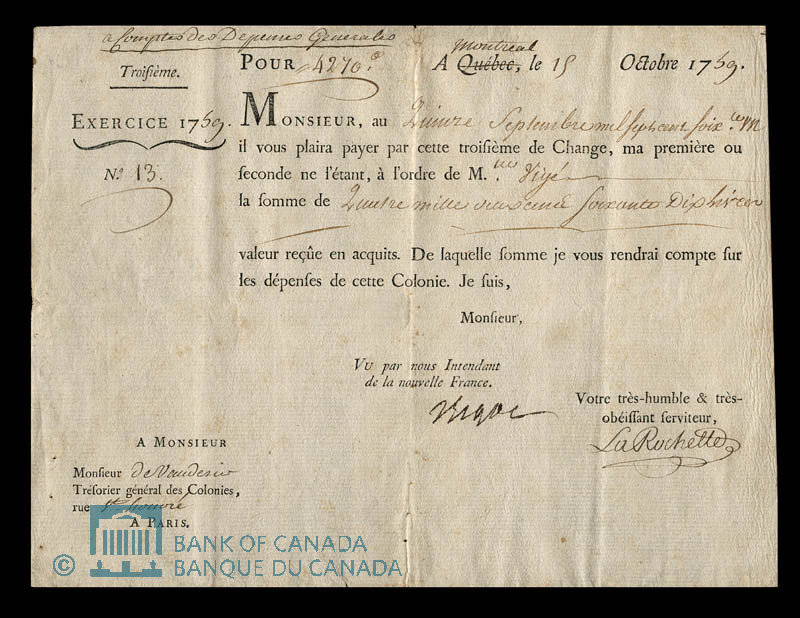 a Comptes des Depenses Generales
Troiſième.
POUR 4270
Montreal
A Québec, le 15 Octobre 1759.
EXERCICE 1759.
N.º 13.
MONSIEUR, au Quinze Septembre mil sept cent soix.
il vous plaira payer par cette troiſième de Change, ma première ou
ſeconde ne l'étant, à l'ordre de M. Vigé
la ſomme de Quatre mille deux cents soixante dix livres
valeur reçûe en acquits. De laquelle ſomme je vous rendrai compte ſur
les dépenſes de cette Colonie. Je ſuis,
Monſieur,
VU par nous Intendant
de la nouvelle France.
Bigot
Votre très-humble & très-
obéiſſant ſerviteur,
LaRochette
A MONSIEUR
Monſieur de Vaudesir
Tréſorier général des Colonies,
rue St honoré
A PARIS.
© BANK OF CANADA
BANQUE DU CANADA